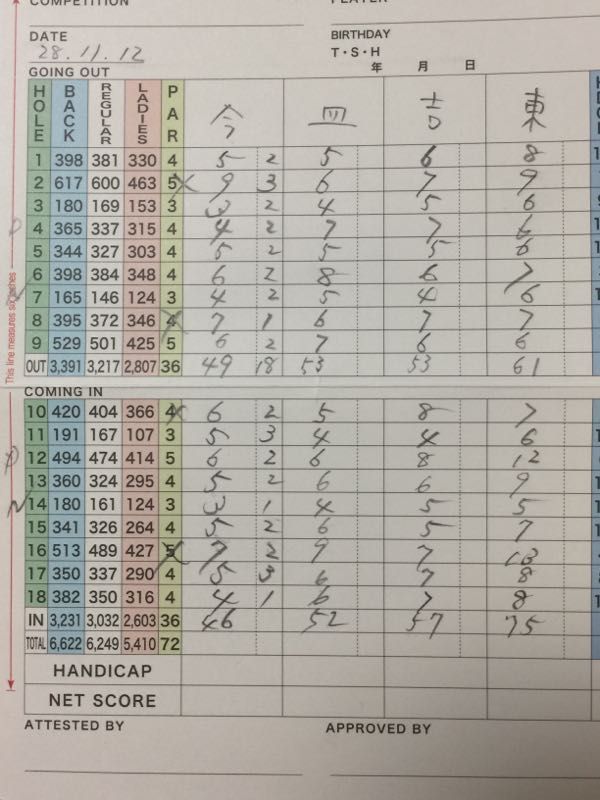 COMPETITION PLAYER
DATE BIRTHDAY
28.11.12 T・S・H
年 月 日
GOING OUT
HOLE BACK REGULAR LADIES PAR 今 吉 東
1 398 381 330 4 5 2 5 6 8
2 617 600 463 5 X 9 3 6 7 9
3 180 169 153 3 3 2 4 5 6
4 365 337 315 4 4 2 7 7 6
5 344 327 303 4 5 2 5 5 6
6 398 384 348 4 6 2 8 6 7
7 165 146 124 3 4 2 5 4 6
8 395 372 346 4 X 7 1 6 7 7
9 529 501 425 5 6 2 7 6 6
OUT 3,391 3,217 2,807 36 49 18 53 53 61
COMING IN
10 420 404 366 4 X 6 2 5 8 7
11 191 167 107 3 5 3 4 4 6
12 494 474 414 5 6 2 6 8 12
13 360 324 295 4 5 2 6 6 9
14 180 161 124 3 3 1 4 5 5
15 341 326 264 4 5 2 6 5 7
16 513 489 427 5 X 7 2 9 7 13
17 350 337 290 4 5 3 6 7 8
18 382 350 316 4 4 1 6 7 8
IN 3,231 3,032 2,603 36 46 52 57 75
TOTAL 6,622 6,249 5,410 72
HANDICAP
NET SCORE
ATTESTED BY APPROVED BY
This line measures